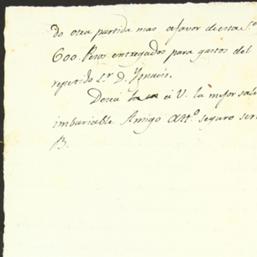 do otra partida mas a favor de esta
600. Pesos entregados para gastos del
repetido Sr. D. Ignacio.
Deseo a V. la mejor salu
imbariable Amigo att.o seguro ser
B.